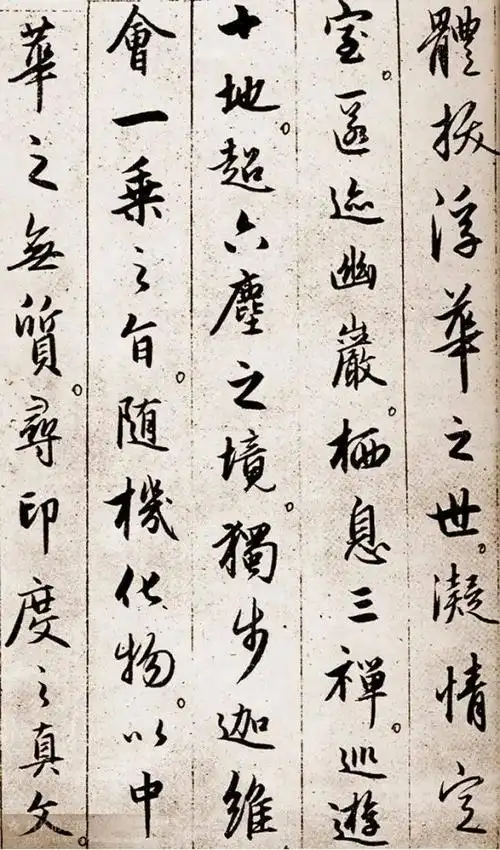 體拔浮華之世。凝情定
室。匿迹幽巖。栖息三禪。巡遊
十地。超六塵之境。獨步迦維
會一乘之旨。随機化物。以中
華之無質。尋印度之真文。